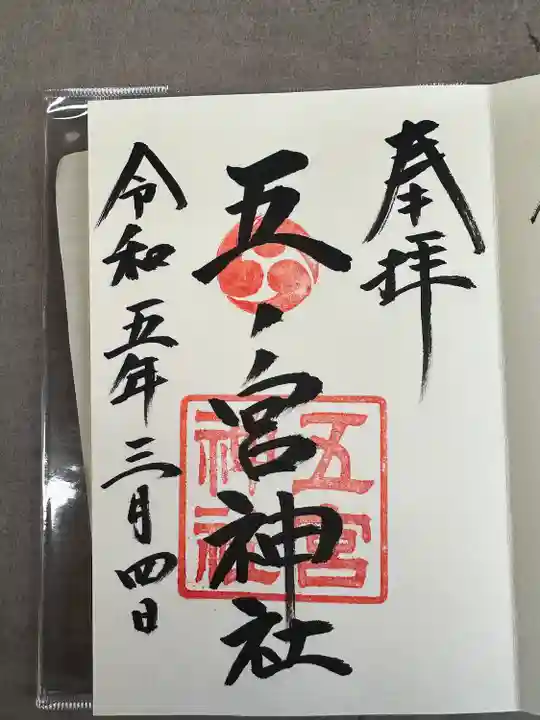 奉拝
五ノ宮神社
五宮
神社
令和五年三月四日